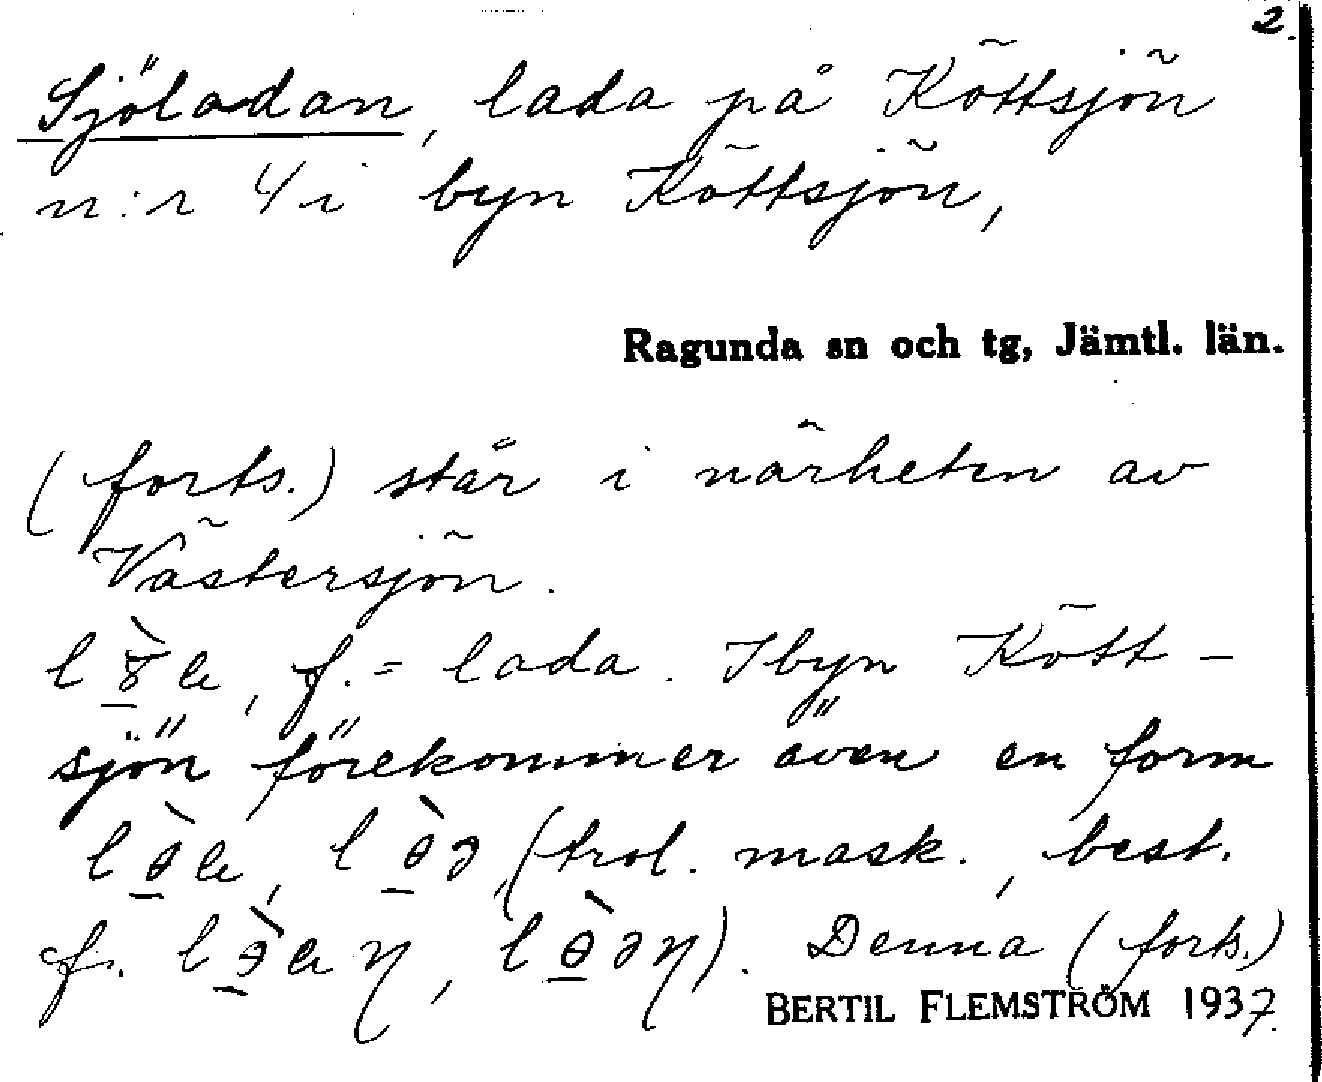 2.
Sjöladan, lada på Köttsjön
n:r 4 i byn Köttsjön,
Ragunda sn och tg, Jämtl. län.
(forts.) står i närheten av
Västersjön.
f. = lada. I byn Kött-
sjön förekommer även en form
(trol. mask., best.
f. Denna (forts.)
BERTIL FLEMSTRÖM 1937.